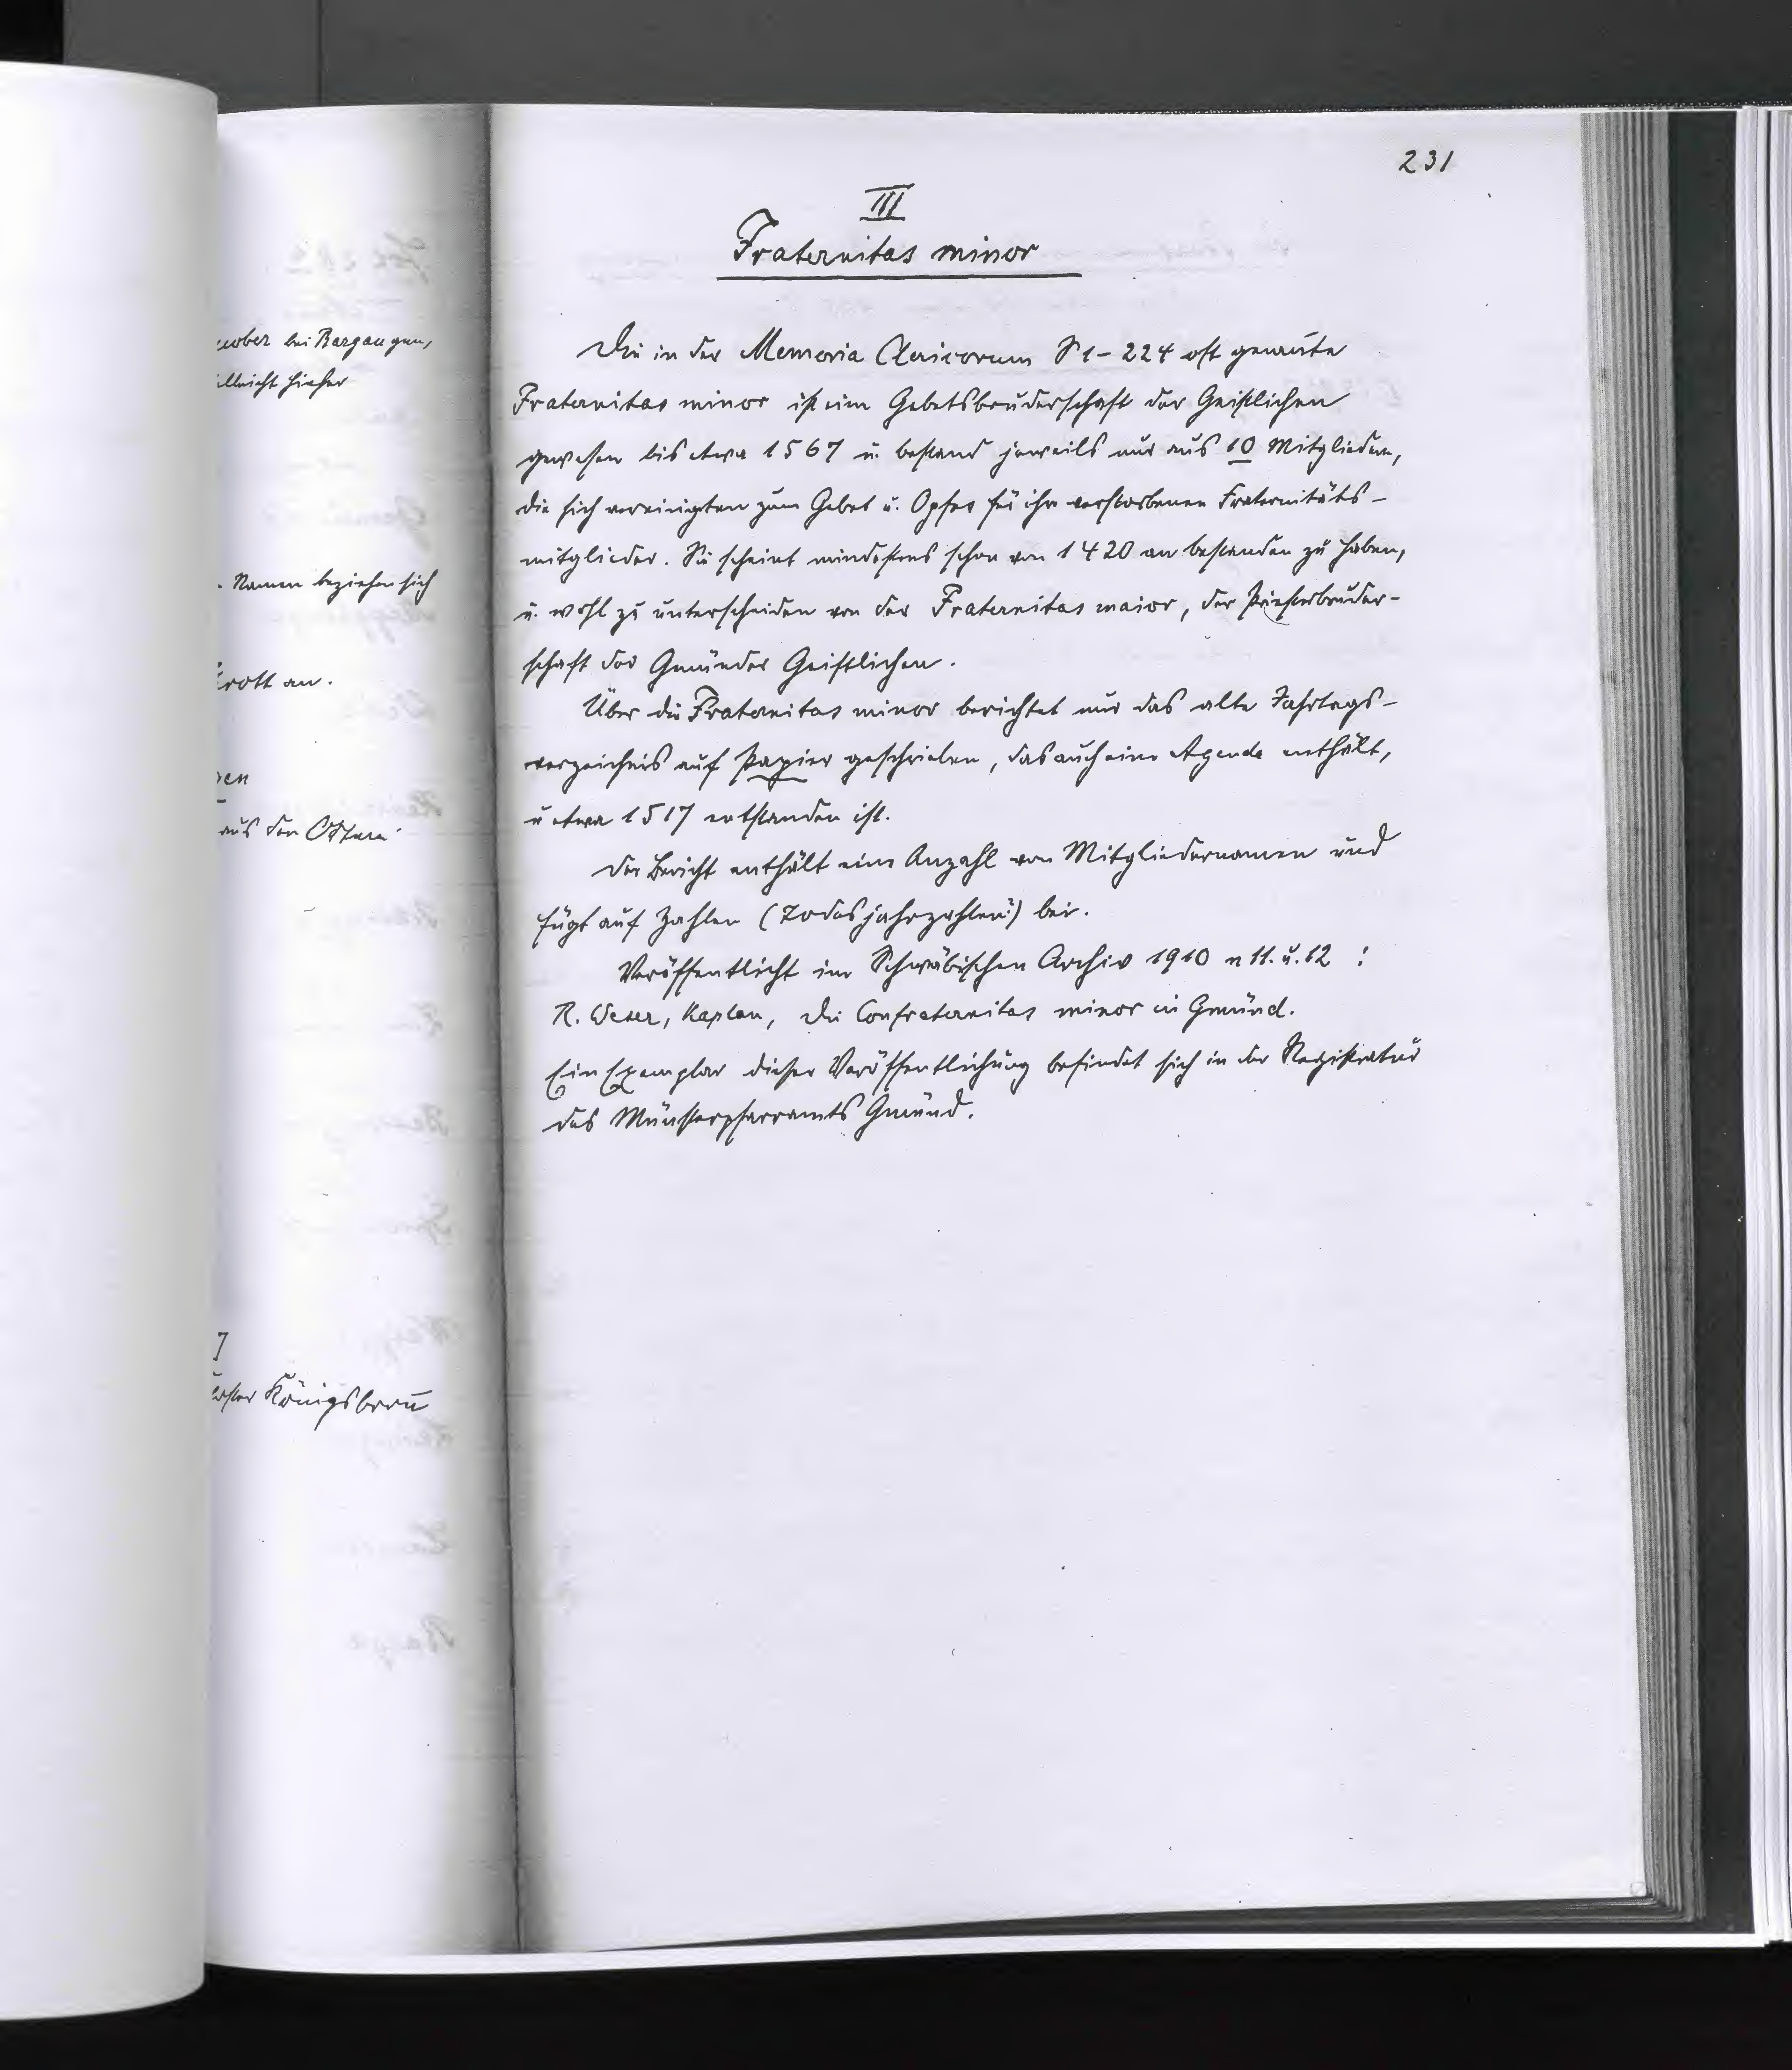 weober bei Bargau gen,
illeicht hieher
. Namen beziehen sich
rott an.
en
aus den
]
loster Königsbron̄
231
III
Fraternitas minor
Die in der Memoria Clericorum S 1-224 oft genan̄te
Fraternitas minor ist eine Gebetsbruderschaft der Geistlichen
gewesen bis etwa 1567 u. bestand jeweils nur aus 10 Mitgliedern,
die sich vereinigten zum Gebet u. Opfer für ihre verstorbenen Fraternitäts-
mitglieder. Sie scheint mindestens schon von 1420 an bestanden zu haben,
u. wohl zu unterscheiden von der Fraternitas maior, der Priesterbruder-
schaft der Gmünder Geistlichen.
Über die Fraternitas minor berichtet nur das alte Jahrtags-
verzeichnis auf Papier geschrieben, das auch eine Agende enthält,
u etwa 1517 entstanden ist.
Der Bericht enthält eine Anzahl von Mitgliedernamen und
fügt auf Zahlen (Todesjahrzahlen?) bei.
Veröffentlicht im Schwäbischen Archiv 1910 n 11. u. 12 :
R. Weser, Kaplan, Die Confraternitas minor in Gmünd.
Ein Exemplar dieser Veröffentlichung befindet sich in der Registratur
des Münsterpfarramts Gmünd.